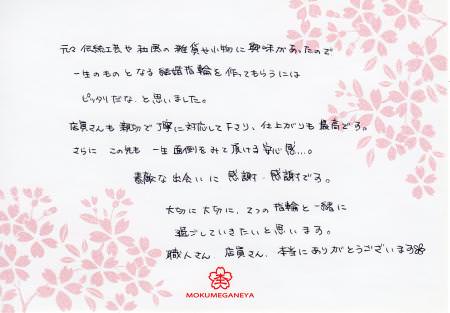 元々 伝統工芸や和風の雑貨や小物に興味があったので
一生のものとなる結婚指輪を作ってもらうには
ピッタリだな と思いました。
店員さんも親切で丁寧に対応して下さり、仕上がりも最高です。
さらに この先も 一生面倒をみて頂ける安心感…。
素敵な出会いに 感謝・感謝です。
大切に大切に、2つの指輪と一緒に
過ごしていきたいと思います。
職人さん、店員さん、本当にありがとうございます
MOKUMEGANEYA